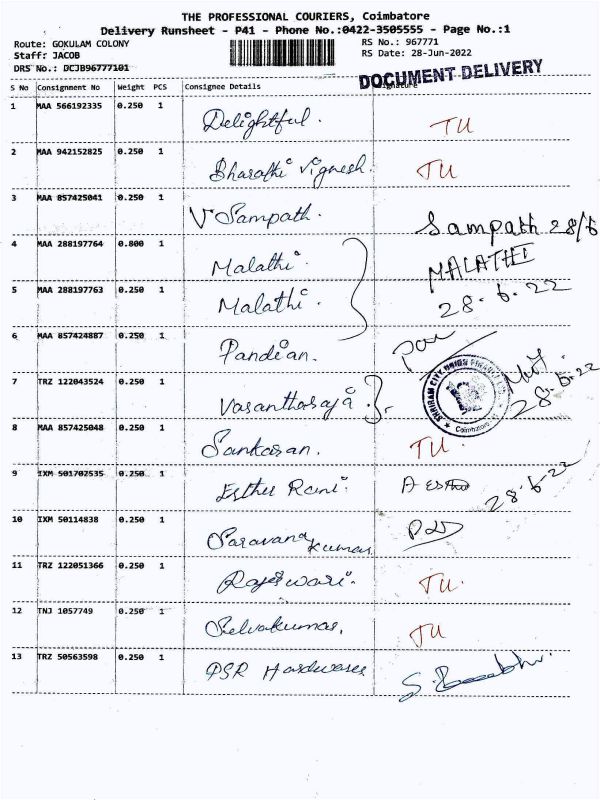 THE PROFESSIONAL COURIERS, Coimbatore
Delivery Runsheet - P41 - Phone No.:0422-3505555 - Page No.:1
Route: GOKULAM COLONY
Staff: JACOB
DRS No.: DCJB96777101
RS No.: 967771
RS Date: 28-Jun-2022
DOCUMENT DELIVERY
S No Consignment No Weight PCS Consignee Details Signature
1 MAA 566192335 0.250 1 Delightful. TU
2 MAA 942152825 0.250 1 Bharathi Vignesh. TU
3 MAA 857425041 0.250 1 V Sampath. Sampath 28/6
4 MAA 288197764 0.800 1 Malathi. MALATHI
5 MAA 288197763 0.250 1 Malathi. 28.6.22
6 MAA 857424887 0.250 1 Pandian.
7 TRZ 122043524 0.250 1 Vasantharaja. 28-6-22
SHRIRAM CITY UNION FINANCE LTD.
Coimbatore
8 MAA 857425048 0.250 1 Sankaran. TU.
9 IXM 501702535 0.250 1 Esther Rani. 28-6-22
10 IXM 50114838 0.250 1 Saravana kumar
11 TRZ 122051366 0.250 1 Rajeswari. TU.
12 TNJ 1057749 0.250 1 Selvakumar. TU
13 TRZ 50563598 0.250 1 PSR Hardwares